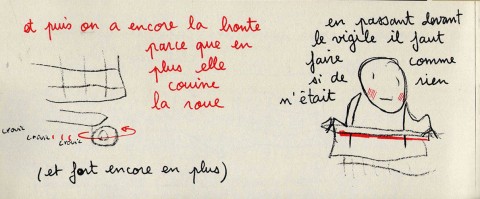 et puis on a encore la honte
parce que en
plus elle
couine
la roue
crouiz
crouiz
crouiz
(et fort encore en plus)
en passant devant
le vigile il faut
faire comme
si de rien
n'était